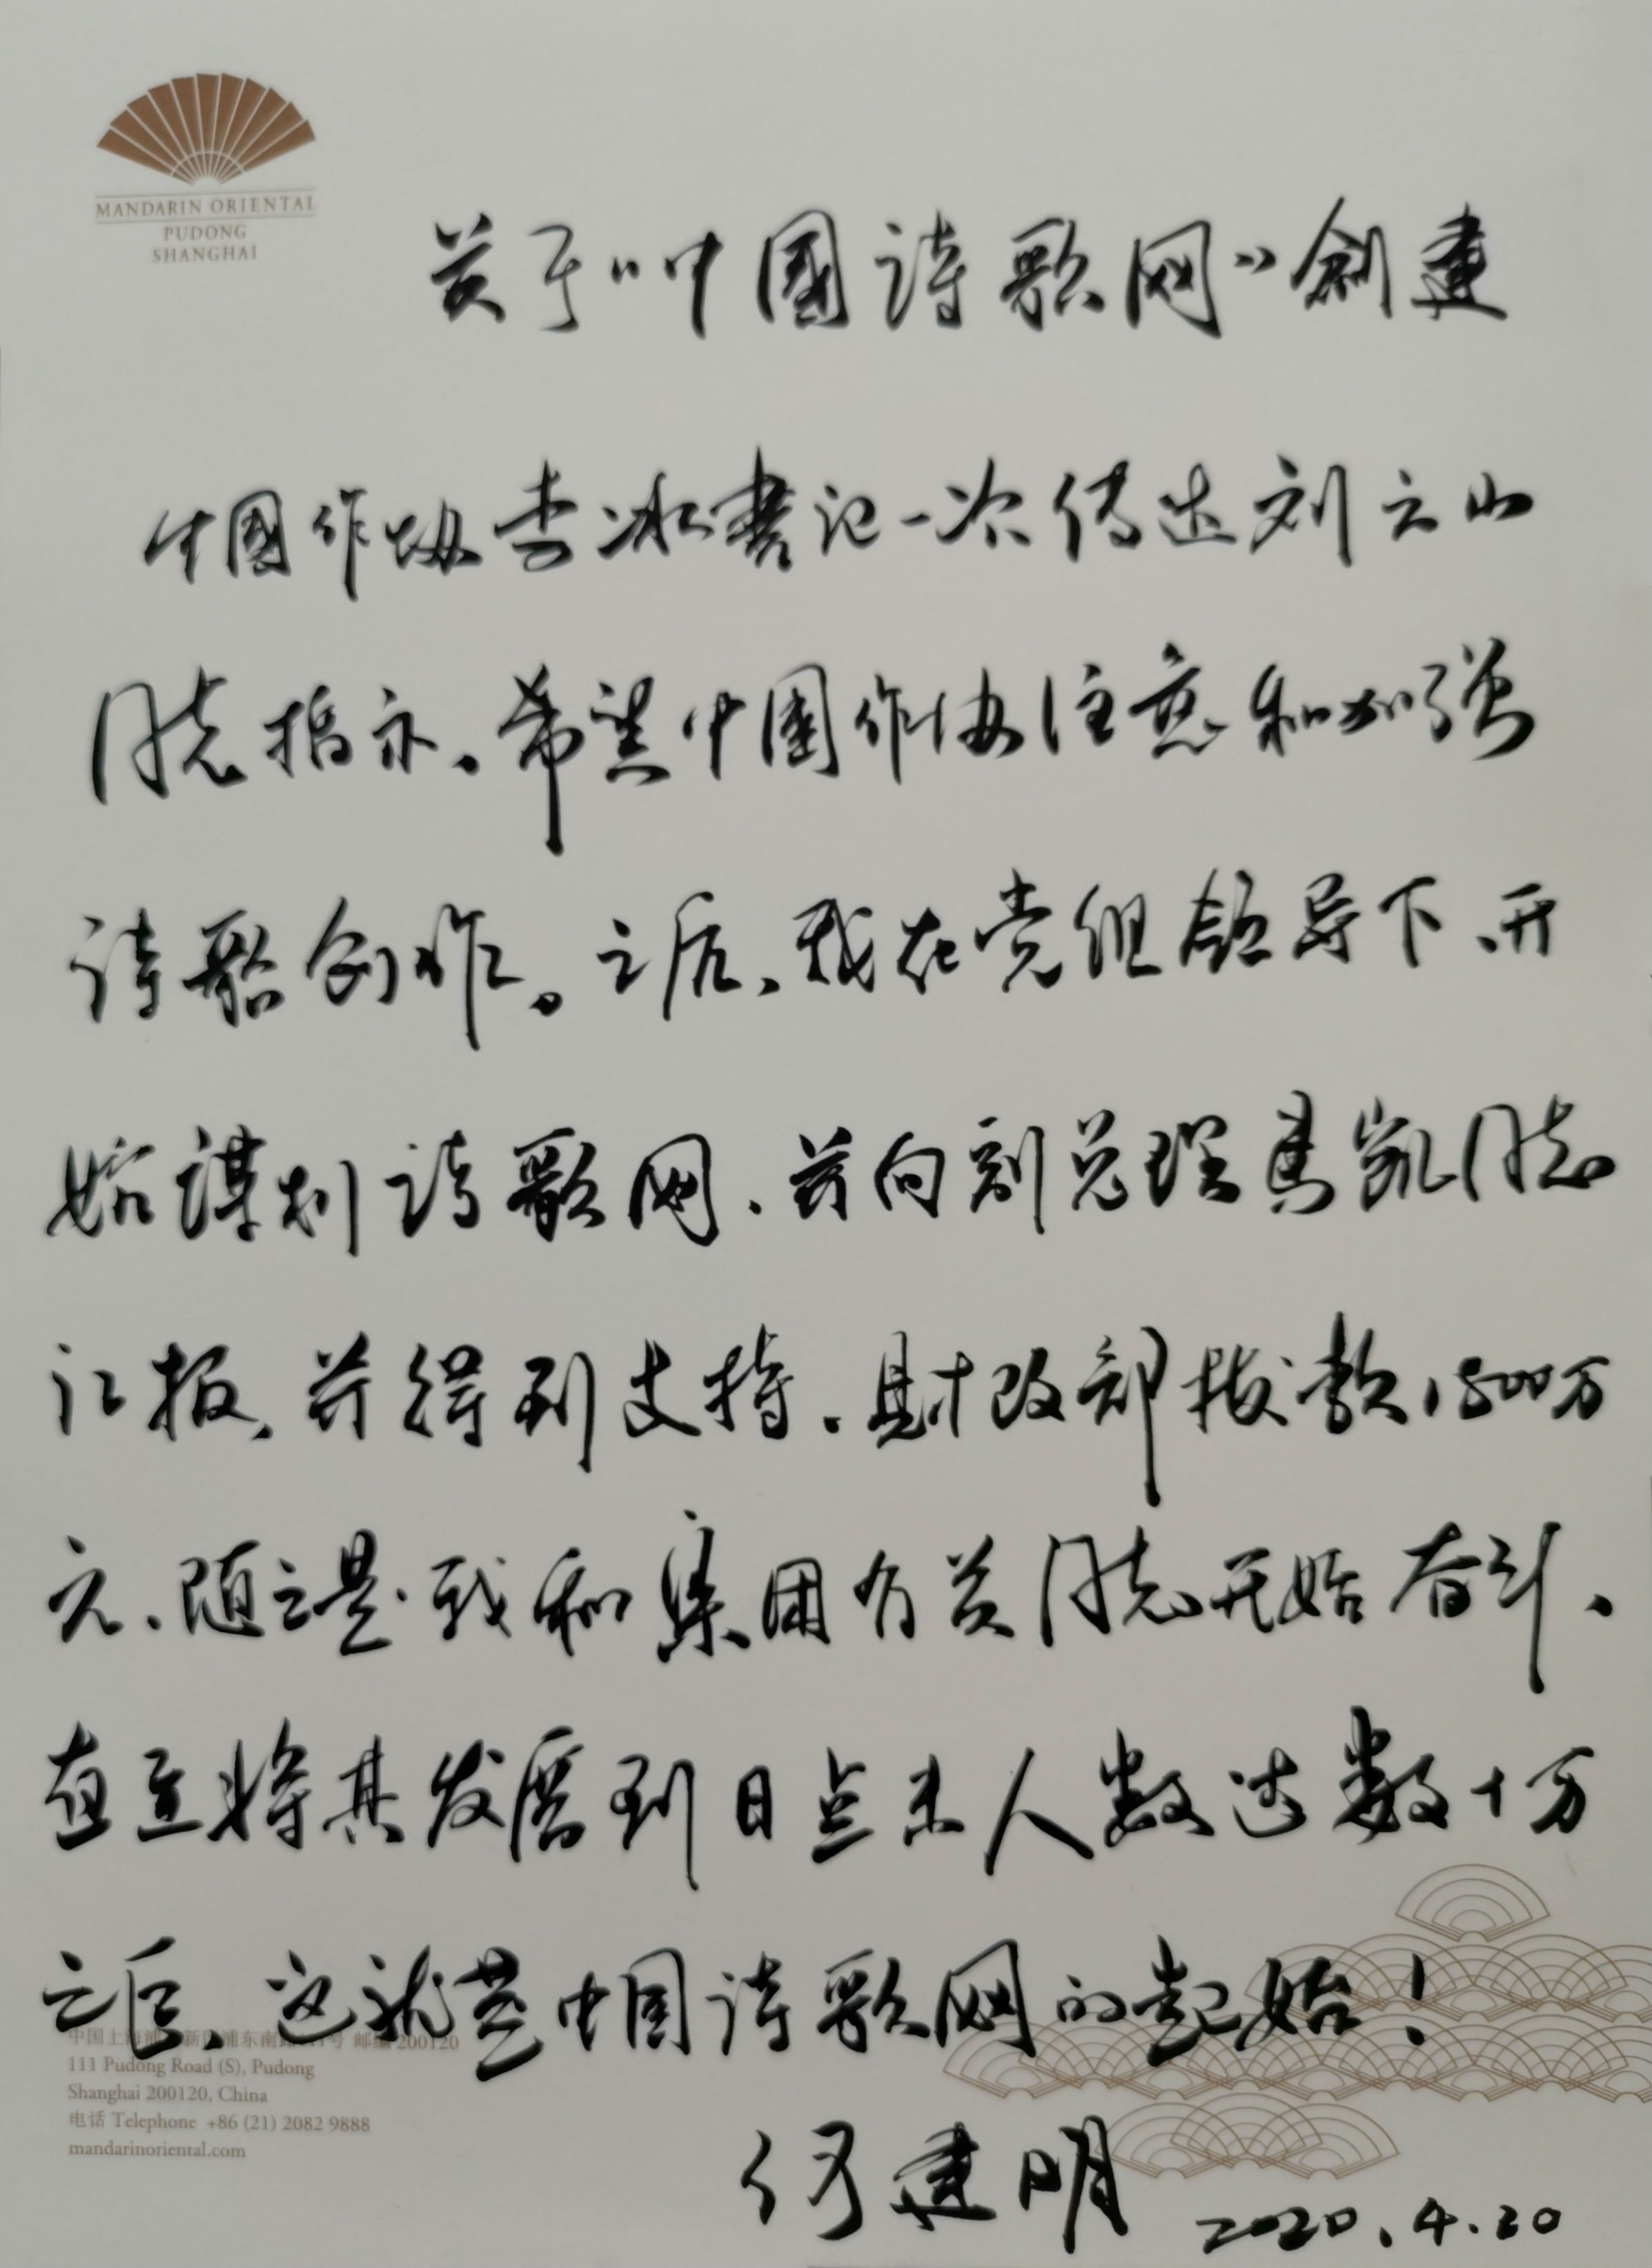 MANDARIN ORIENTAL
PUDONG
SHANGHAI
关于“中國诗歌网”创建
中國作协李冰书记一次传达刘云山
同志指示，希望中国作协注意和加强
诗歌创作。之后，我在党组领导下，开
始谋划诗歌网，并向副总理马凯同志
汇报，并得到支持，财政部拨款1500万
元，随之是我和集团有关同志开始奋斗，
直至将其发展到日点击人数达数十万
之巨，这就是中国诗歌网的起始！
中国上海浦东新区浦东南路111号 邮编 200120
111 Pudong Road (S), Pudong
Shanghai 200120, China
电话 Telephone +86 (21) 2082 9888
mandarinoriental.com
何建明
2020.4.20